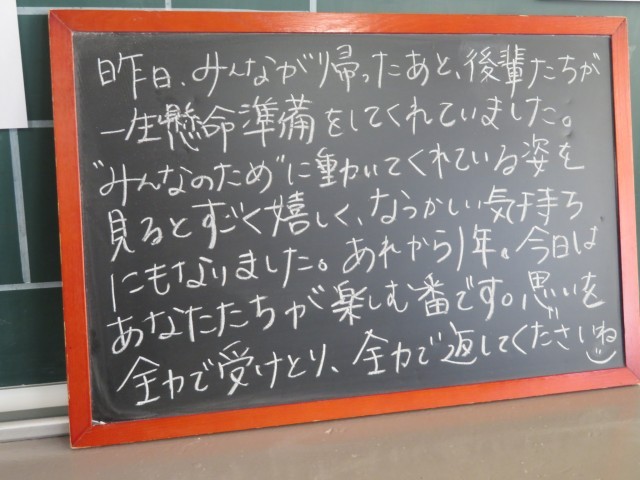 昨日、みんなが帰ったあと、後輩たちが
一生懸命準備をしてくれていました。
"みんなのため"に動いてくれている姿を
見るとすごく嬉しく、なつかしい気持ち
にもなりました。あれから1年。今日は
あなたたちが楽しむ番です。思いを
全力で受けとり、全力で返してくださいね